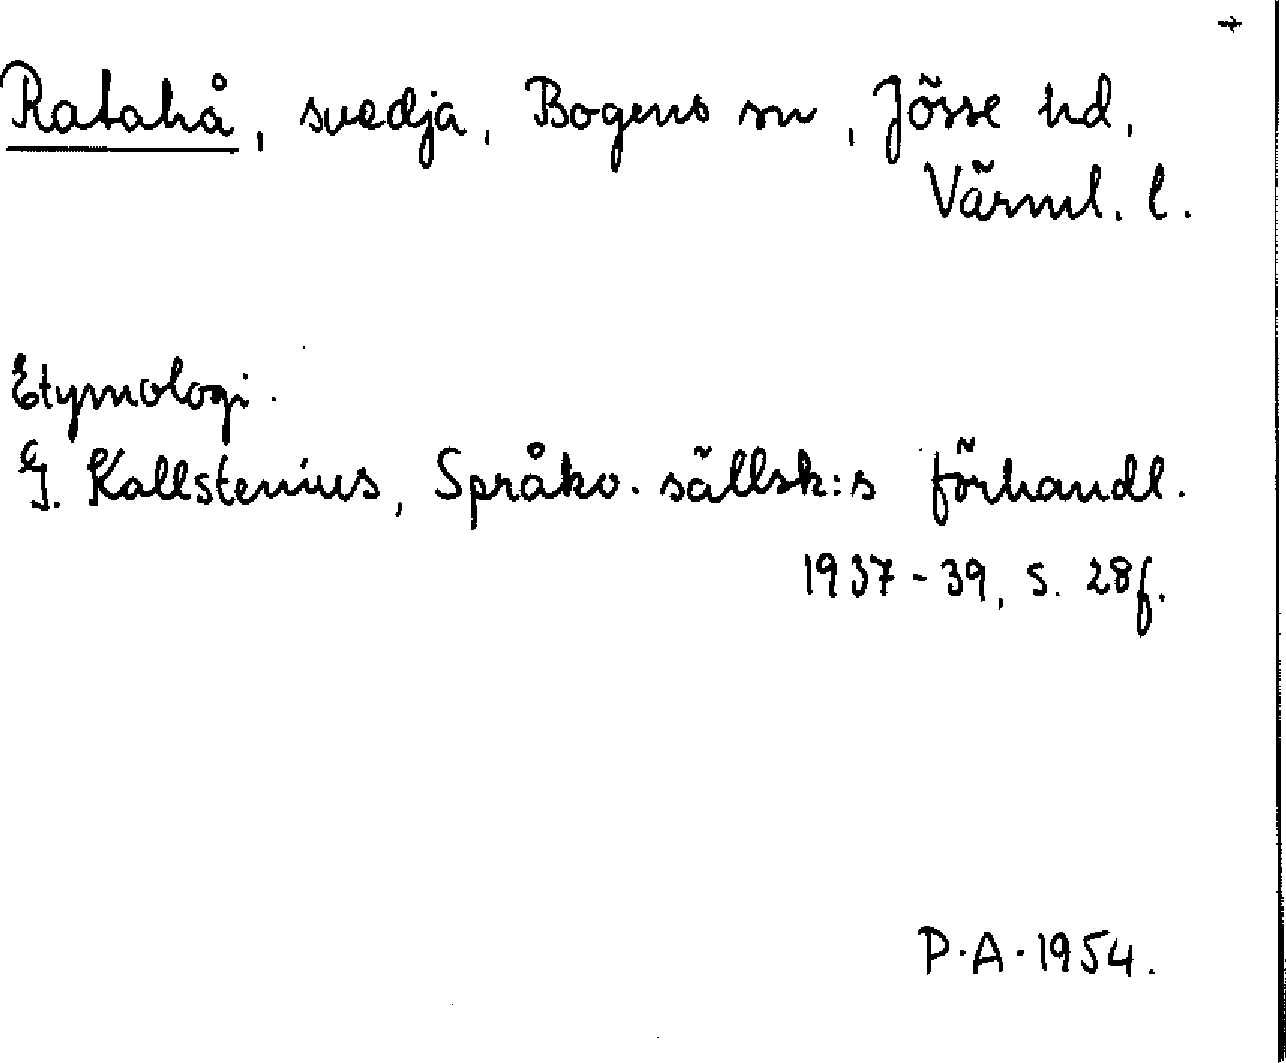 Ratahå, svedja, Bogens sn, Jösse hd,
Värml. l.
Etymologi.
G. Kallstenius, Språkv. sällsk:s förhandl.
1937-39, s. 28f.
P.A. 1954.